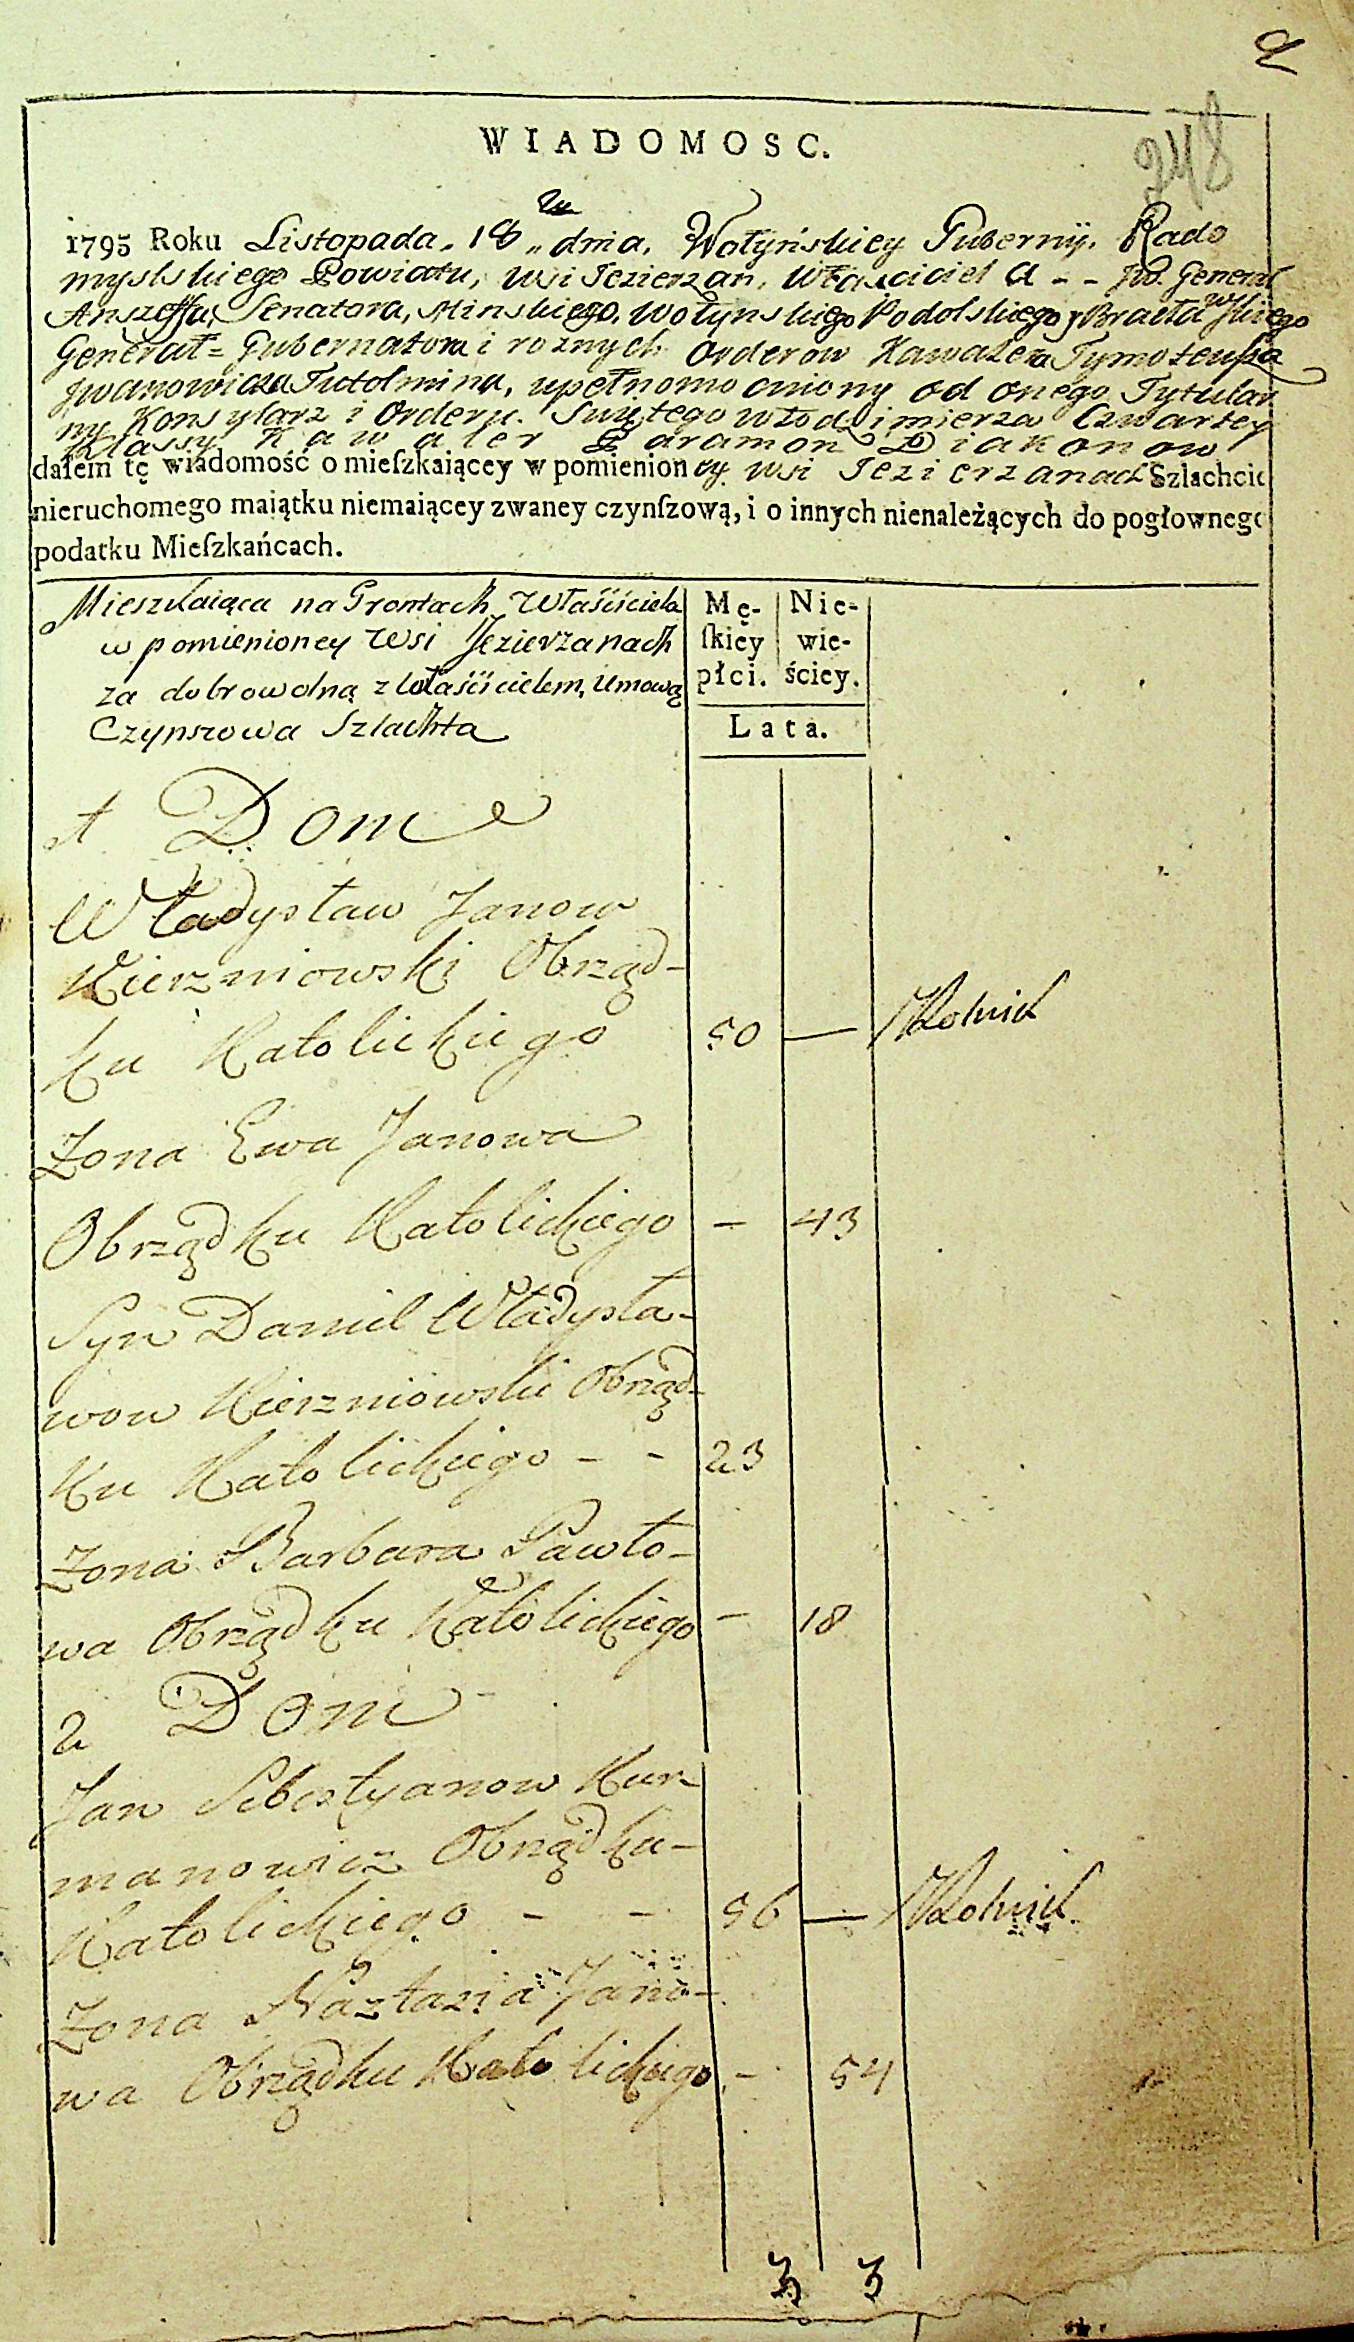 248
WIADOMOSC.
1795 Roku Listopada. 18 „ dnia, Wołyńskiey Gubernij. Rado
myslskiego Powiatu, wsi Jezierzan, Właściciel a - - JW. General
Anszeffa, Senatora, Minskiego, Wołynskiego Podolskiego y Bracławskiego
Generał= Gubernatora i roznych Orderow Kawalera Tymoteusza
Jwanowicza Tutolmina, upełnomocniony od onego Tytular
ny Konsylarz i Orderu. Swiętego Włodzimierza Czwartey
Klassy Kawaler Paramon Diakonow
dałem tę wiadomość o mieſzkaiącey w pomienion ey wsi Jezierzanach Szlachcie
nieruchomego maiątku niemaiącey zwaney czynſzową, i o innych nienależących do pogłownego
podatku Mieſzkańcach.
Mieszkaiąca na Grontach Właściciela
w pomienioney Wsi Jezierzanach
za dobrowolną z Właścicielem, Umową
Czynszowa Szlachta
Mę-
ſkiey
płci.
Nie-
wie-
ściey.
Lata.
1 Dom
Władysław Janow
Kierzniowski Obrząd-
ku Katolickiego 50 — Rolnik
Zona Ewa Janowa
Obrządku Katolickiego - 43
Syn Daniel Władysła-
wow Kierzniowski Obrząd-
ku Katolickiego - - 23
Zona Barbara Pawło-
wa Obrządku Katolickiego - 18
2 Dom
Jan Sebestyanow Kur-
manowicz Obrządku-
Katolickiego - - 56 — Rolnik
Zona Nastazia Jano-
wa Obrządku Katolickiego - 54
3 3